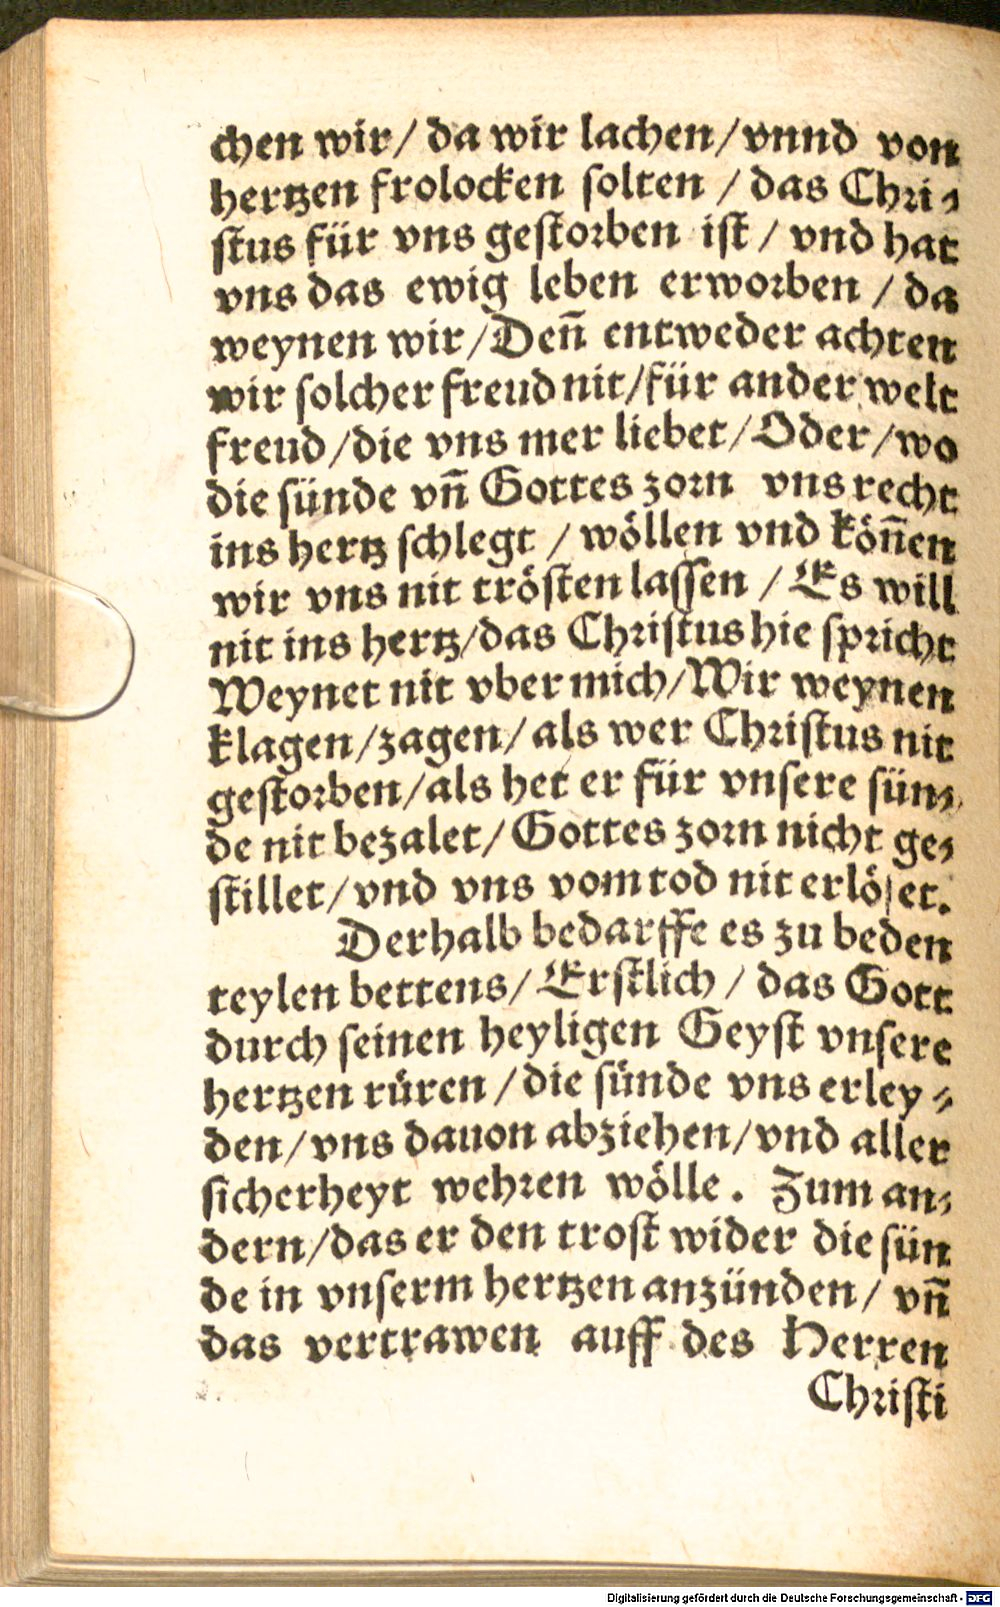 chen wir/ da wir lachen/ vnnd von
hertzen frolocken solten / das Chri⸗
stus für vns gestorben ist / vnd hat
vns das ewig leben erworben / da
weynen wir/ Den̄ entweder achten
wir solcher freud nit/ für ander welt
freud/ die vns mer liebet/ Oder/ wo
die sünde vn̄ Gottes zorn vns recht
ins hertz schlegt / wöllen vnd kön̄en
wir vns nit trösten lassen / Es will
nit ins hertz/ das Christus hie spricht
Weynet nit vber mich/ Wir weynen
klagen/ zagen/ als wer Christus nit
gestorben/ als het er für vnsere sün⸗
de nit bezalet/ Gottes zorn nicht ge⸗
stillet/ vnd vns vom tod nit erlöset.
Derhalb bedarffe es zu beden
teylen bettens/ Erstlich / das Gott
durch seinen heyligen Geyst vnsere
hertzen rüren / die sünde vns erley⸗
den/ vns dauon abziehen/ vnd aller
sicherheyt wehren wölle. Zum an⸗
dern/ das er den trost wider die sün
de in vnserm hertzen anzünden/ vn̄
das vertrawen auff des Herren
Christi
Digitalisierung gefördert durch die Deutsche Forschungsgemeinschaft - DFG